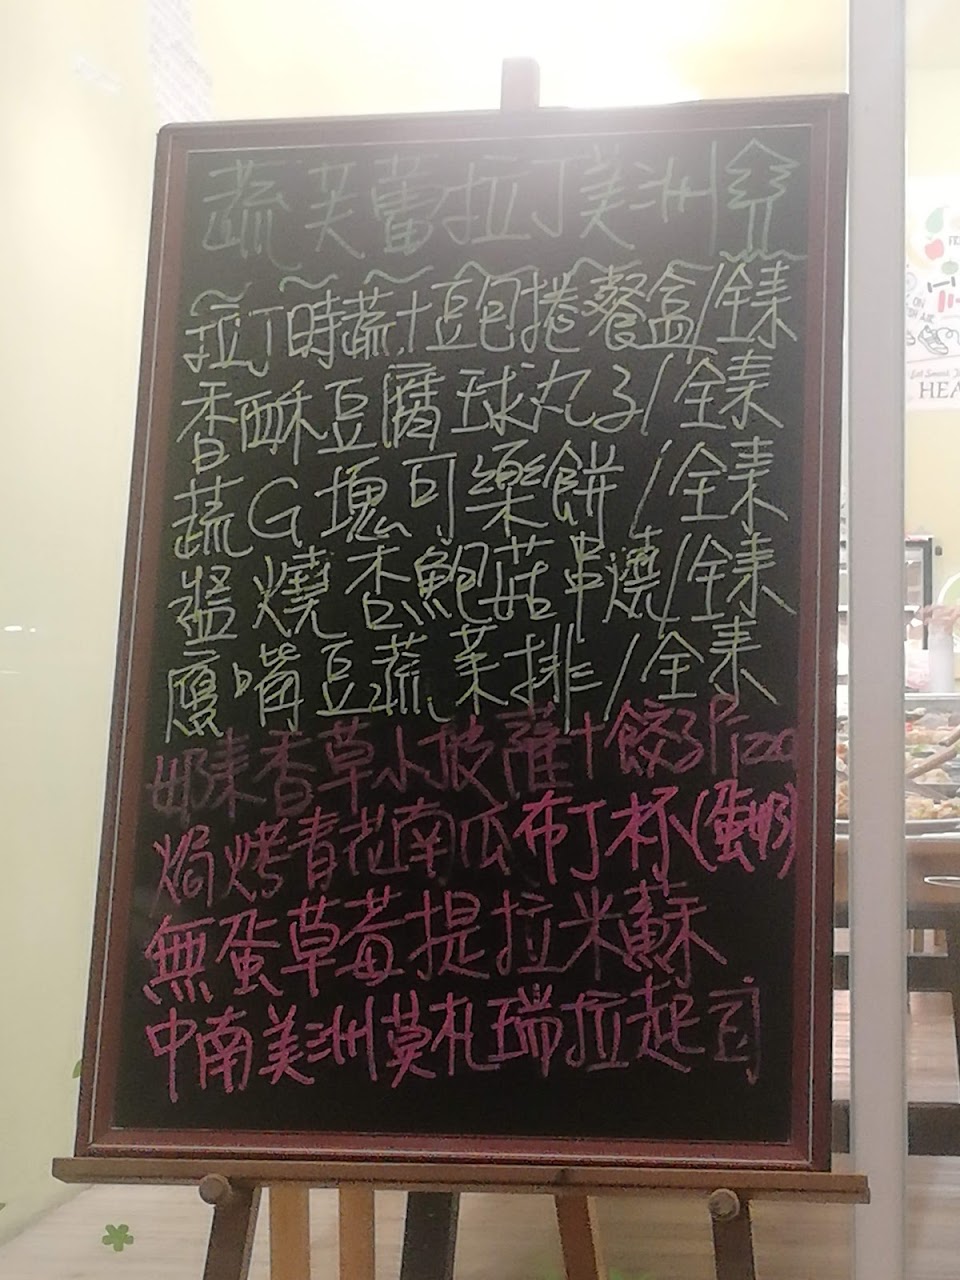 蔬芙蕾拉丁美洲
拉丁時蔬+豆包捲餐盒/全素
香酥豆腐球丸子/全素
蔬G塊可樂餅/全素
醬燒杏鮑菇串燒/全素
鷹嘴豆蔬菜排/全素
奶素香草小披薩+餃子Pizza
焗烤青花南瓜布丁杯(蛋奶)
無蛋草莓提拉米蘇
中南美洲莫札瑞拉起司
HEA